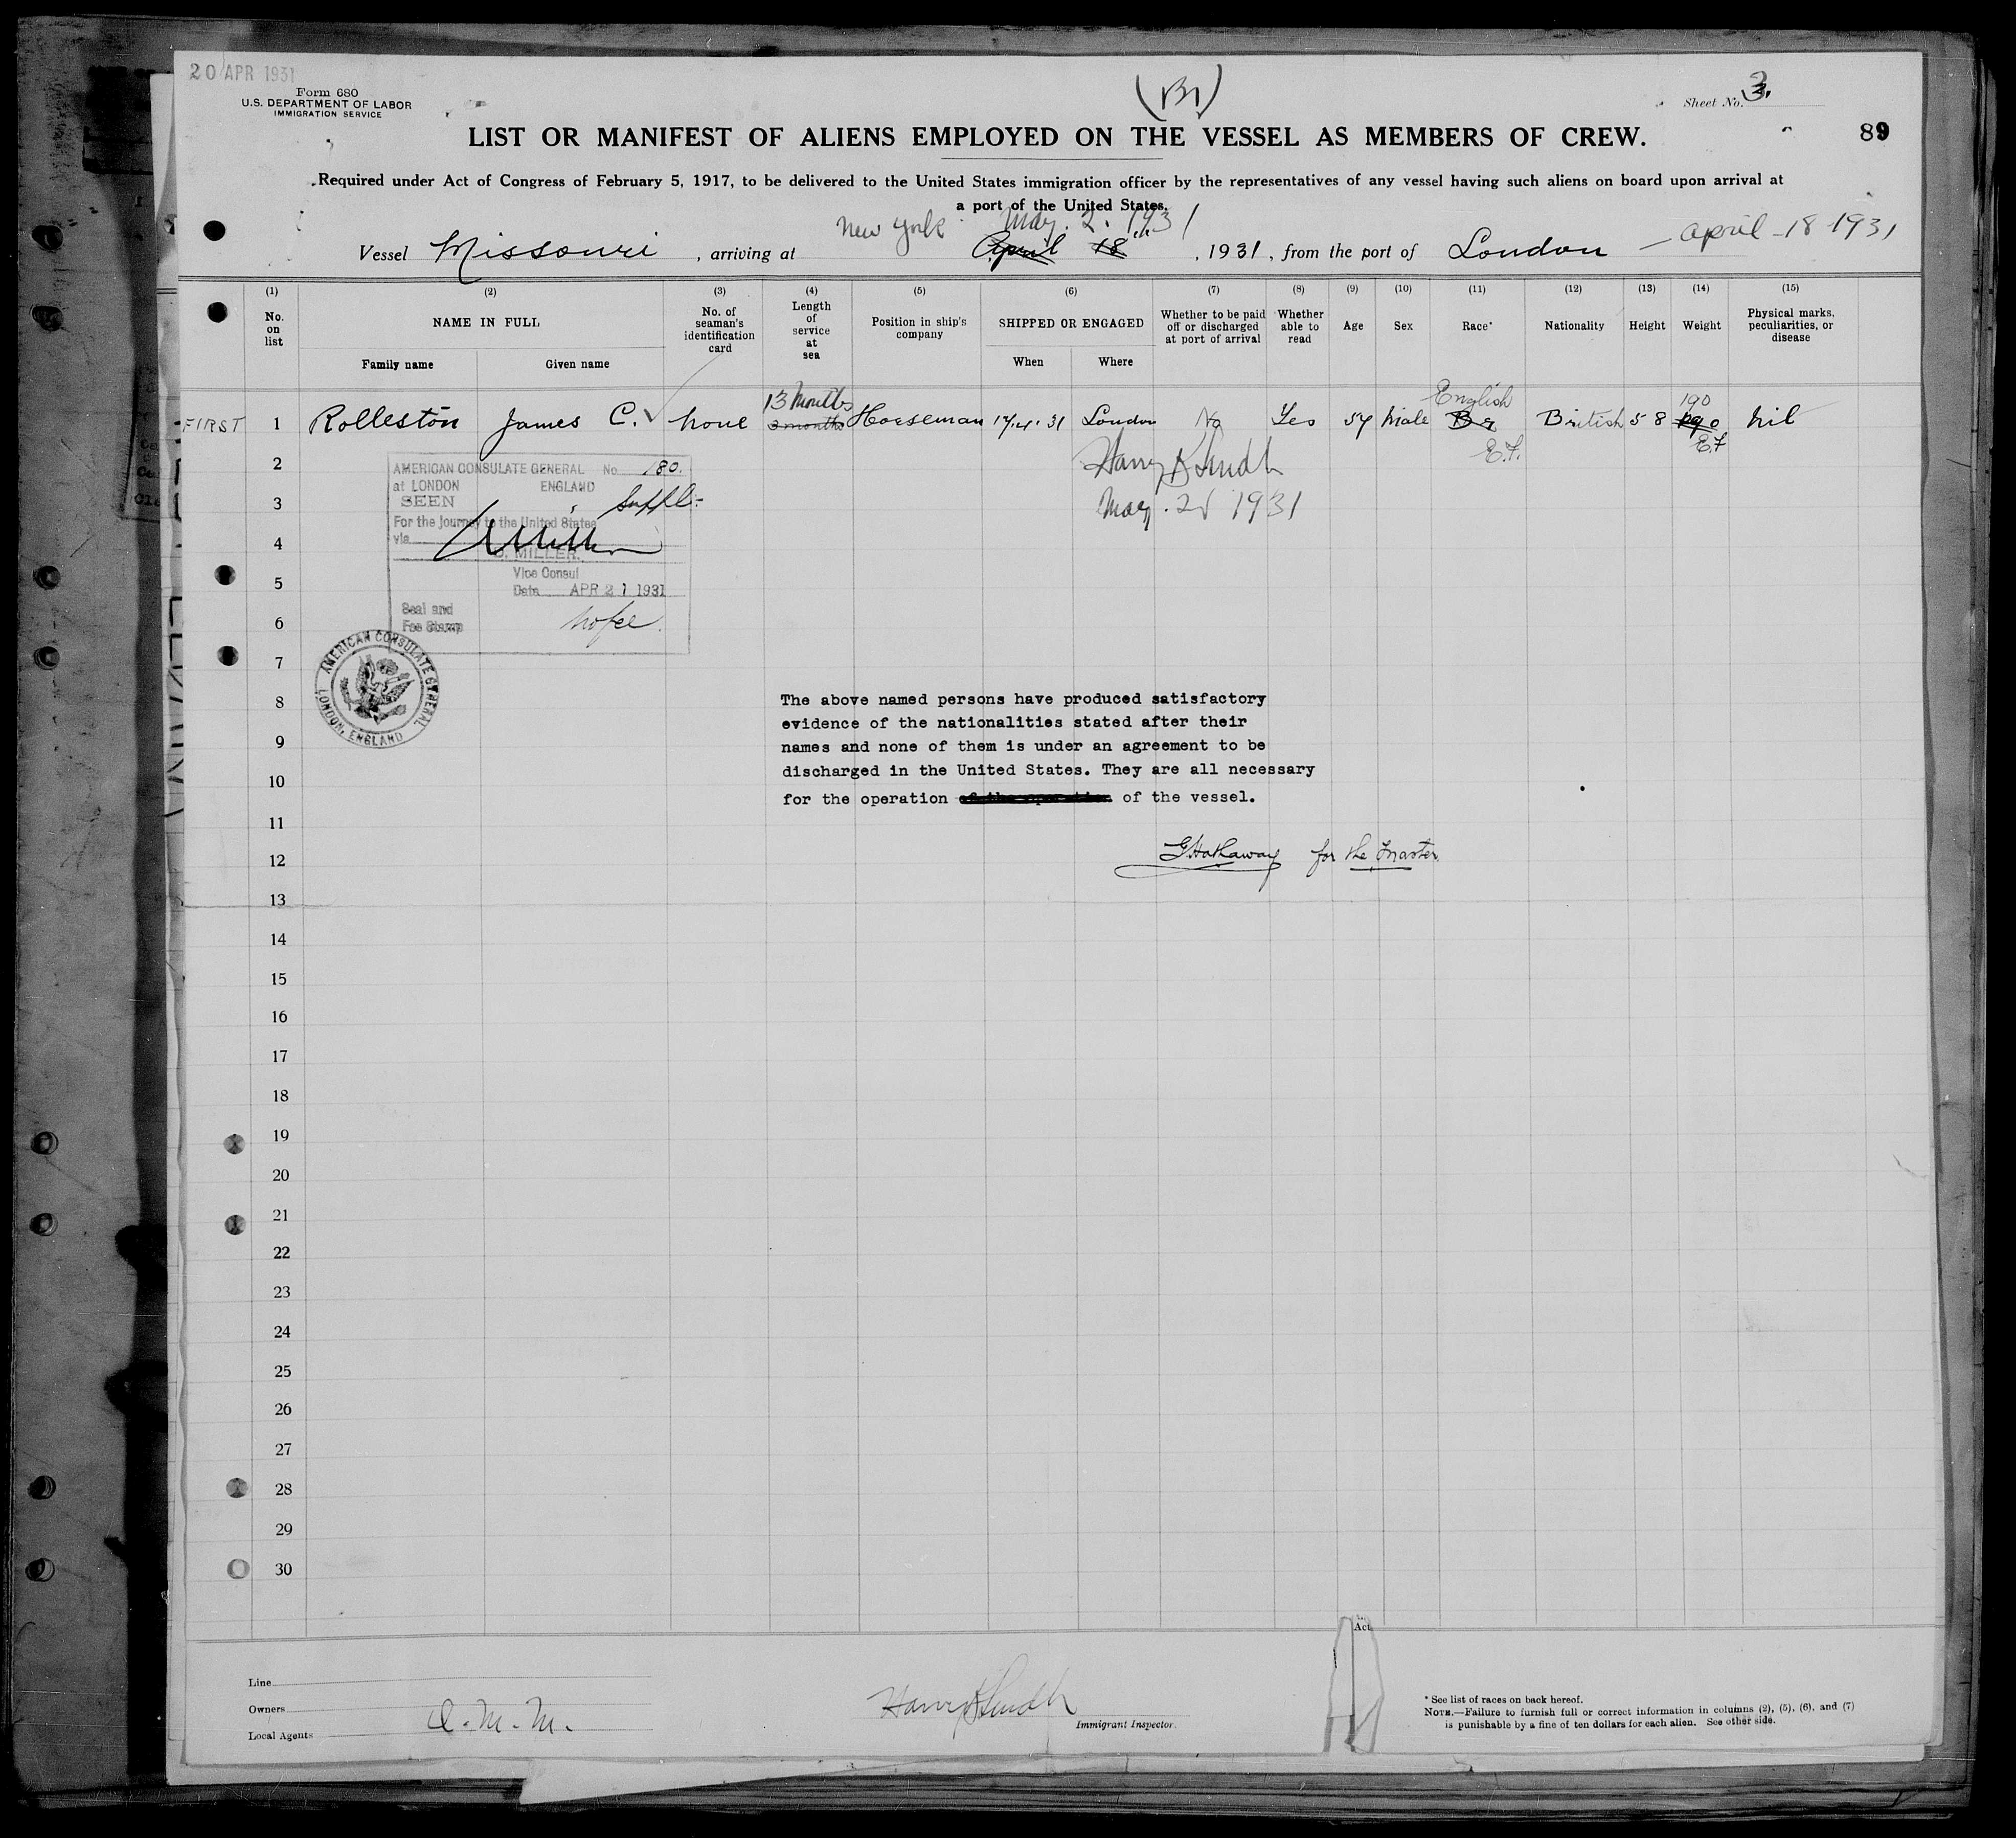 20 APR 1931
Form 680
U.S. DEPARTMENT OF LABOR
IMMIGRATION SERVICE
Sheet No. 3.
LIST OR MANIFEST OF ALIENS EMPLOYED ON THE VESSEL AS MEMBERS OF CREW.
89
Required under Act of Congress of February 5, 1917, to be delivered to the United States immigration officer by the representatives of any vessel having such aliens on board upon arrival at
a port of the United States.
New York May. 2. 1931
Vessel Missouri, arriving at April 18th, 1931, from the port of London — April - 18 1931
(1) (2) (3) (4) (5) (6) (7) (8) (9) (10) (11) (12) (13) (14) (15)
No. on list
NAME IN FULL
Family name
Given name
No. of seaman's identification card
Length of service at sea
Position in ship's company
SHIPPED OR ENGAGED
When
Where
Whether to be paid off or discharged at port of arrival
Whether able to read
Age
Sex
Race*
Nationality
Height
Weight
Physical marks, peculiarities, or disease
13 Months English 190
FIRST 1 Rolleston James C. none 3 months Horseman 17.4.31 London No Yes 54 Male Br British 5 8 nil
E.F. E.F
2
3
4
5
6
7
8
9
10
11
12
13
14
15
16
17
18
19
20
21
22
23
24
25
26
27
28
29
30
AMERICAN CONSULATE GENERAL No 180.
at LONDON ENGLAND
SEEN Suppl:-
For the Journey to the United States
via
MILLER.
Vice Consul
Date APR 21 1931
Seal and
Fee Stamp
No fee.
AMERICAN CONSULATE GENERAL
LONDON, ENGLAND
May. 2 1931
The above named persons have produced satisfactory
evidence of the nationalities stated after their
names and none of them is under an agreement to be
discharged in the United States. They are all necessary
for the operation of the operation of the vessel.
G Hathaway for the Master.
Line
Owners
Local Agents
I.M.M.
Immigrant Inspector.
Act
* See list of races on back hereof.
NOTE.—Failure to furnish full or correct information in columns (2), (5), (6), and (7)
is punishable by a fine of ten dollars for each alien. See other side.